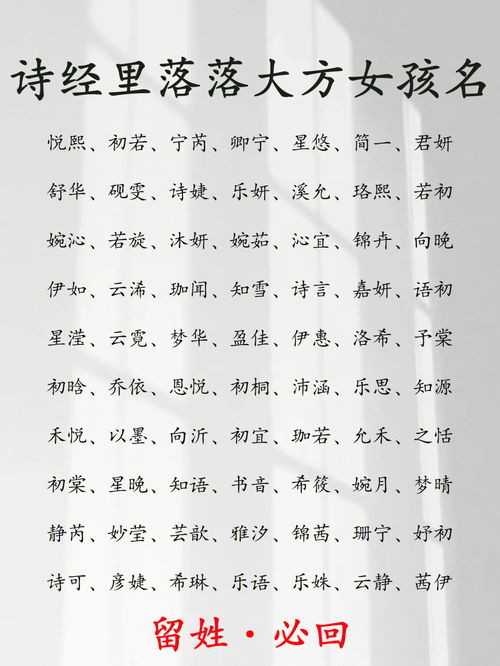 诗经里落落大方女孩名
悦熙、初若、宁芮、卿宁、星悠、简一、君妍
舒华、砚雯、诗婕、乐妍、溪允、珞熙、若初
婉沁、若旋、沐妍、婉茹、沁宜、锦卉、向晚
伊如、云浠、珈闻、知雪、诗言、嘉妍、语初
星滢、云霓、梦华、盈佳、伊惠、洛希、予棠
初晗、乔依、恩悦、初桐、沛涵、乐思、知源
禾悦、以墨、向沂、初宜、珈若、允禾、之恬
初棠、星晚、知语、书音、希筱、婉月、梦晴
静芮、妙莹、芸歆、雅汐、锦茜、珊宁、妤初
诗可、彦婕、希琳、乐语、乐姝、云静、茜伊
留姓·必回